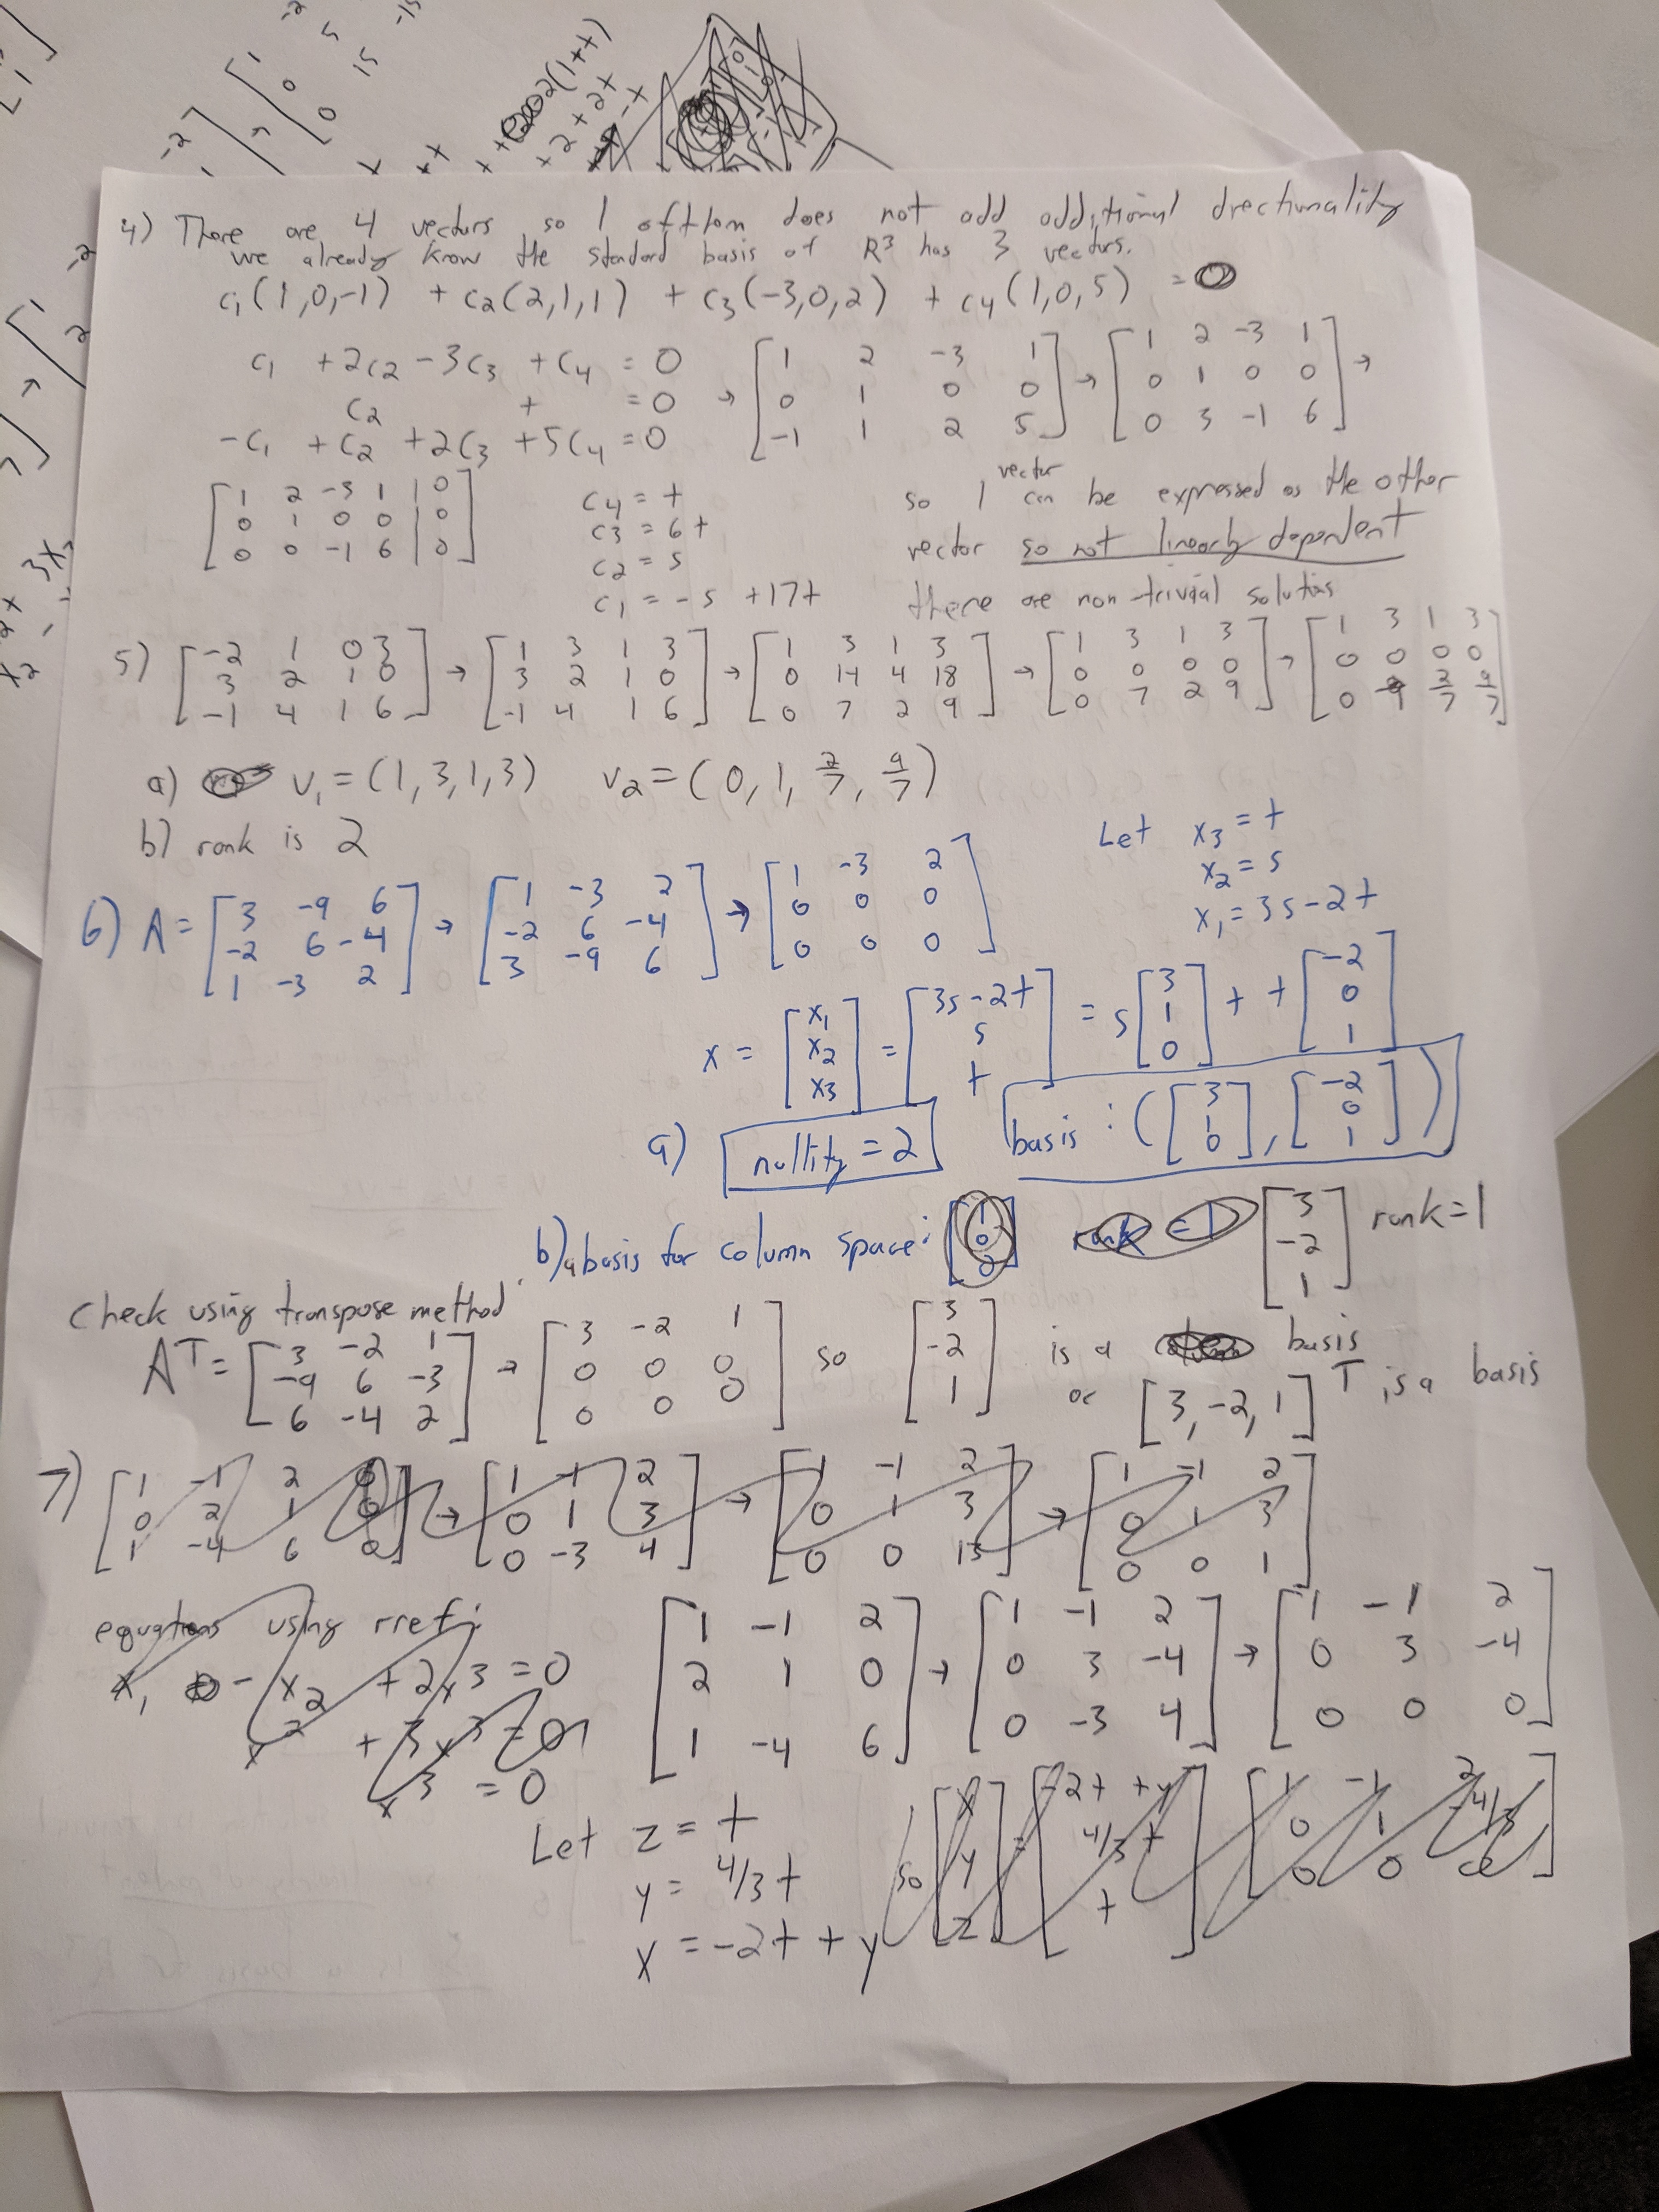 4) There are 4 vectors so 1 of them does not add additional directionality
we already know the standard basis of R³ has 3 vectors.
c₁(1,0,-1) + c₂(2,1,1) + c₃(-3,0,2) + c₄(1,0,5) = 0
c₁ + 2c₂ - 3c₃ + c₄ = 0
c₂ + = 0
-c₁ + c₂ + 2c₃ + 5c₄ = 0
→ [1 2 -3 1
0 1 0 0
-1 1 2 5]
→ [1 2 -3 1
0 1 0 0
0 3 -1 6] →
[1 2 -3 1 | 0
0 1 0 0 | 0
0 0 -1 6 | 0]
c₄ = t
c₃ = 6t
c₂ = s
c₁ = -s + 17t
so 1 vector can be expressed as the other
vector so not linearly dependent
there are non-trivial solutions
5) [-2 1 0 3
3 2 1 0
-1 4 1 6]
→ [1 3 1 3
3 2 1 0
-1 4 1 6]
→ [1 3 1 3
0 14 4 18
0 7 2 9]
→ [1 3 1 3
0 0 0 0
0 7 2 9]
→ [1 3 1 3
0 0 0 0
0 2/7 9/7]
a) v₁ = (1,3,1,3) v₂ = (0,1,2/7,9/7)
b) rank is 2
6) A = [3 -9 6
-2 6 -4
1 -3 2]
→ [1 -3 2
-2 6 -4
3 -9 6]
→ [1 -3 2
0 0 0
0 0 0]
Let x₃ = t
x₂ = s
x₁ = 3s-2t
x = [x₁
x₂
x₃]
= [3s-2t
s
t]
= s[3
1
0]
+ t[-2
0
1]
a) nullity = 2
basis : ([3
1
0],
[-2
0
1])
b) a basis for column space:
[3
-2
1] rank=1
Check using transpose method
Aᵀ = [3 -2 1
-9 6 -3
6 -4 2]
→ [3 -2 1
0 0 0
0 0 0]
so [3
-2
1]
is a basis
or [3,-2,1]ᵀ is a basis
7) [1 -1 2 0
0 2 1 0
1 -4 6 0]
→ [1 -1 2
0 1 3
0 -3 4]
→ [1 -1 2
0 1 3
0 0 13]
→ [1 -1 2
0 1 3
0 0 1]
equations using rref:
x₁ - x₂ + 2x₃ = 0
x₂ + 3x₃ = 0
x₃ = 0
[1 -1 2
2 1 0
1 -4 6]
→ [1 -1 2
0 3 -4
0 -3 4]
→ [1 -1 2
0 3 -4
0 0 0]
Let z = t
y = 4/3t
x = -2t + y
so [x
y
z]
= [-2t + y
4/3 t
t]
[1 -1 2
0 1 -4/3
0 0 0]